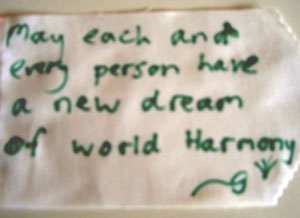 May each and
every person have
a new dream
of world Harmony